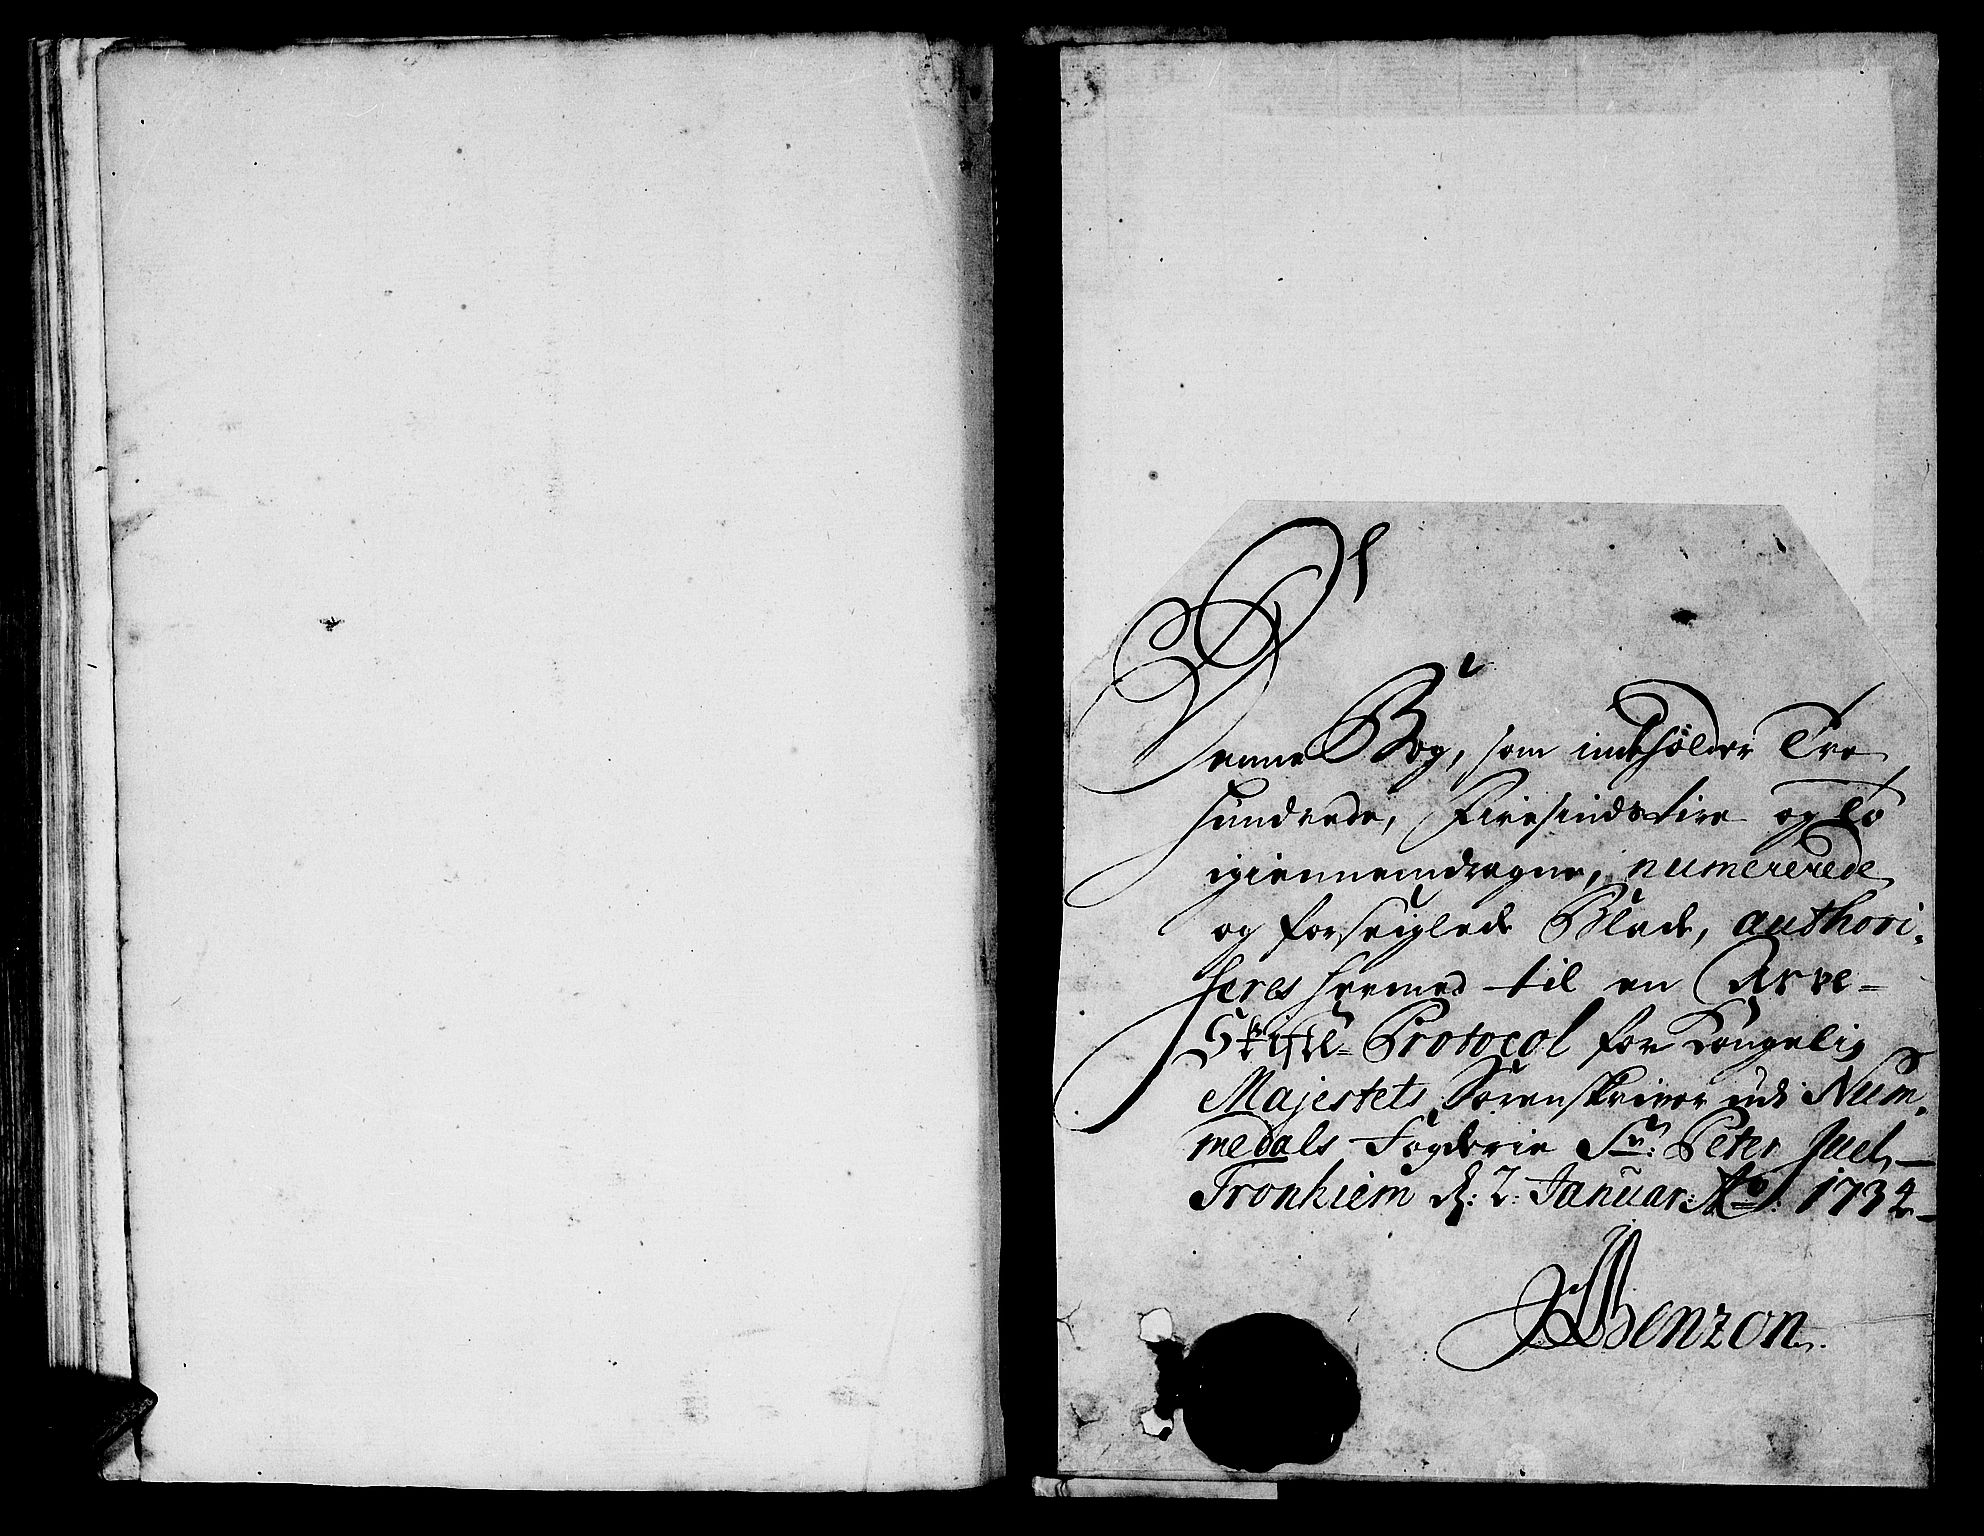 Denne Bog, som indeholder Tre
hundrede, Firesindstive og To
igiennemdragne, numererede
og forseiglede Blade, authori-
seres hermed til en Arve-
Skifte-Protocol for Kongelig
Majestets Sorenskriver udi Num-
medals Fogderie Sr: Peter Juel,
Tronhiem d: 2: Januar: Ao: 1734
Benzon